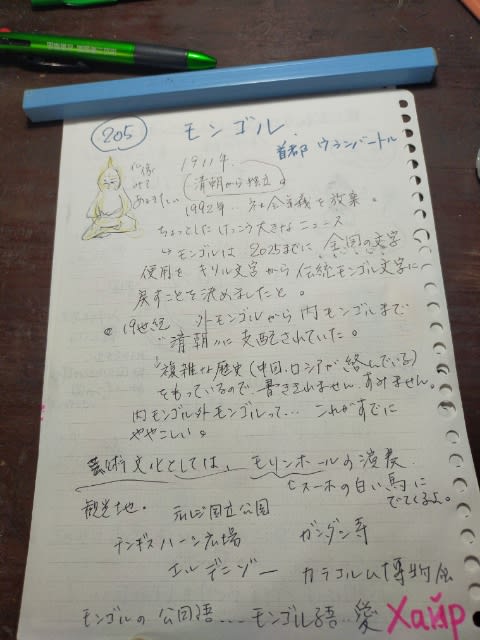 205
モンゴル.
首都 ウランバートル
仏像
みて
あるきたい
1911年.
清朝から独立。
1992年..社会主義を放棄。
ちょっとした けっこう大きなニュース
↳ モンゴルは 2025までに 全国の文字
使用を キリル文字から 伝統モンゴル文字に
戻すことを決めましたと。
19世紀 外モンゴルから内モンゴルまで
清朝に支配されていた。
複雑な歴史(中国、ロシアが絡んでいる)
をもっているので、書ききれません、すみません。
内モンゴル外モンゴルって... これがすでに
ややこしい。
芸術文化としては、モリンホールの演奏
スーホの白い馬に
でてくるよ。
観光地。 テレルジ国立公園
チンギスハーン広場 ガンダン寺
エルデニゾー カラコルム博物館
モンゴルの公用語....モンゴル語..愛 Хайр